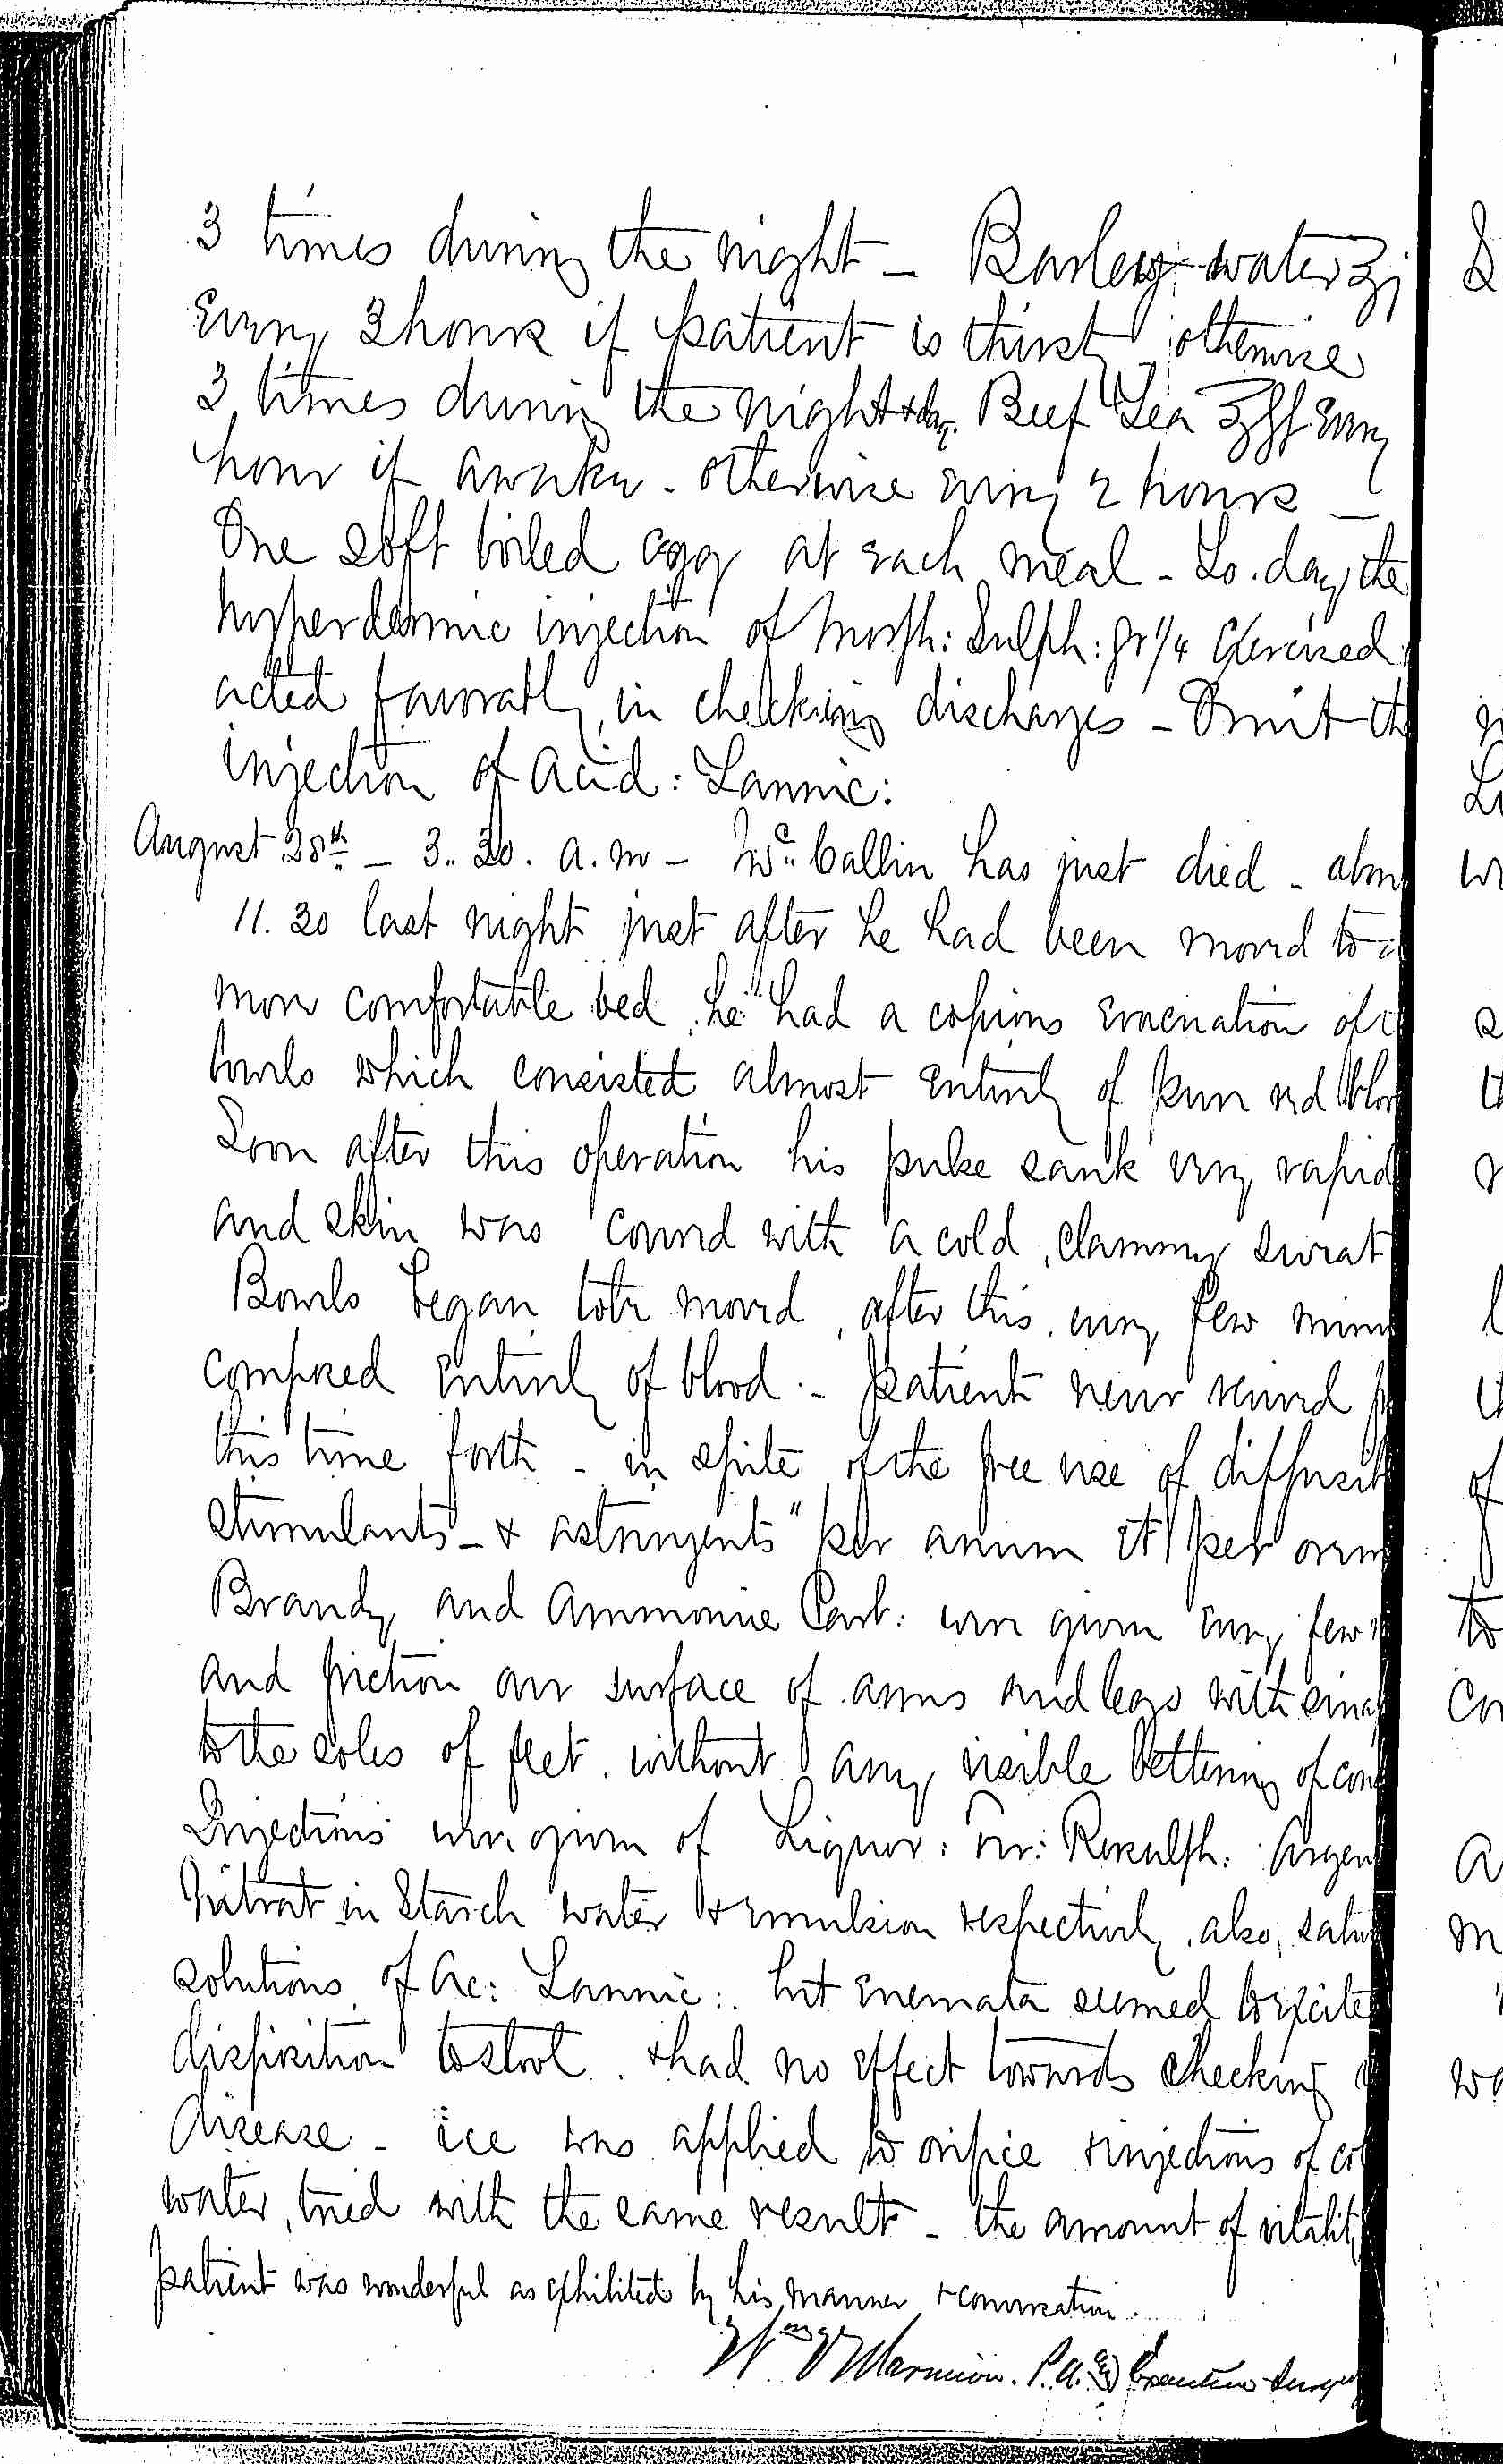 3 times during the night - Barley water ℥j
every 3 hours if patient is thirsty otherwise
3 times during the night & day. Beef Tea ℥ss every
hour if awake - otherwise every 2 hours -
One soft boiled egg at each meal - To.day the
hyperdermic injection of Morph: Sulph: gr 1/4
acted favorably in checking discharges - Omit the
injection of Acid: Tannic:
August 28th - 3.. 30. a.m - Mc.. Callin has just died - abou
11. 30 last night just after he had been moved to a
more comfortable bed, he had a copious evacuation of
bowels which consisted almost entirely of pure red bloo
Soon after this operation his pulse sank very rapid
and skin was covered with a cold, clammy sweat
Bowels began to be moved, after this, every few minu
composed entirely of blood. - patient never revived
this time forth - in spite of the free use of diffusib
stimulants - & astringents " per anum et per orem
Brandy and Ammoniae Carb: were given every few
and friction over surface of arms and legs with sinap
to the soles of feet. without any visible bettering of con
Injections were given of Liquor: Fer: Persulph: Argen
Nitrat in Starch water & emulsion respectively, also, satu
solutions of Ac: Tannic:. but enemata seemed to excite
disposition to stool. & had no effect towards checking
disease - ice was applied to orifice & injections of col
water, tried with the same result - the amount of vitality
patient was wonderful as exhibited by his manner & conversation.
Wm Marmion. P.A. Executive Surge